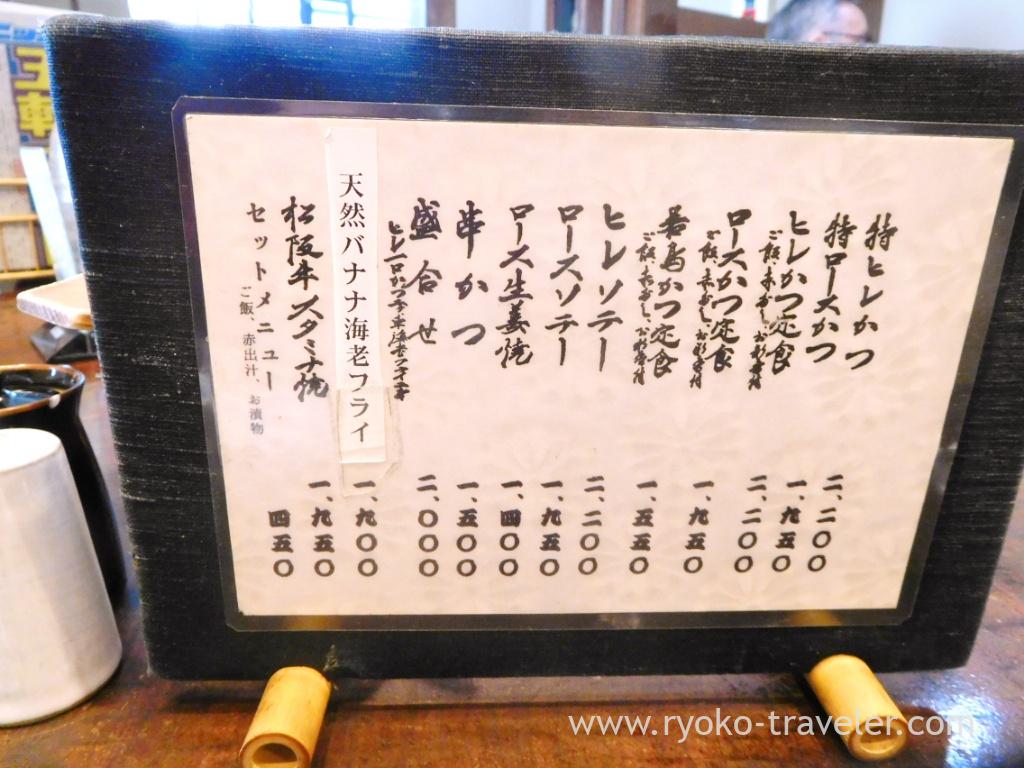 特ヒレかつ 二、二〇〇
特ロースかつ 一、九五〇
ヒレかつ定食 二、二〇〇
ご飯、赤だし、お新香付
ロースかつ定食 一、九五〇
ご飯、赤だし、お新香付
若鳥かつ定食 一、五五〇
ご飯、赤だし、お新香付
ヒレソテー 二、二〇〇
ロースソテー 一、九五〇
ロース生姜焼 一、四〇〇
串かつ 一、五〇〇
盛合せ 二、〇〇〇
ヒレ一口かつ
天然バナナ海老フライ 一、九〇〇
松阪牛スタミナ焼 一、九五〇
セットメニュー 四五〇
ご飯、赤出汁、お漬物
www.ryoko-traveler.com